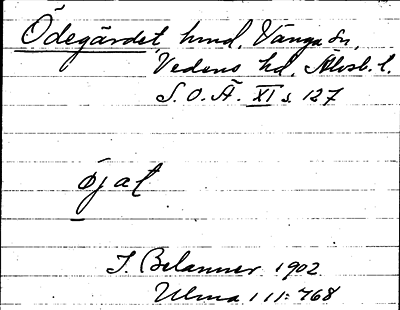 Ödegärdet, hmd, Vånga sn,
Vedens hd, Älvsb. l.
S. O. Ä. XI s. 127
øjat
J. Belanner 1902.
Ulma 111:768